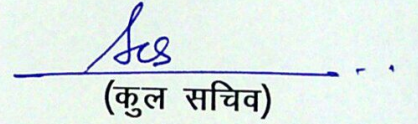 (कुल सचिव)